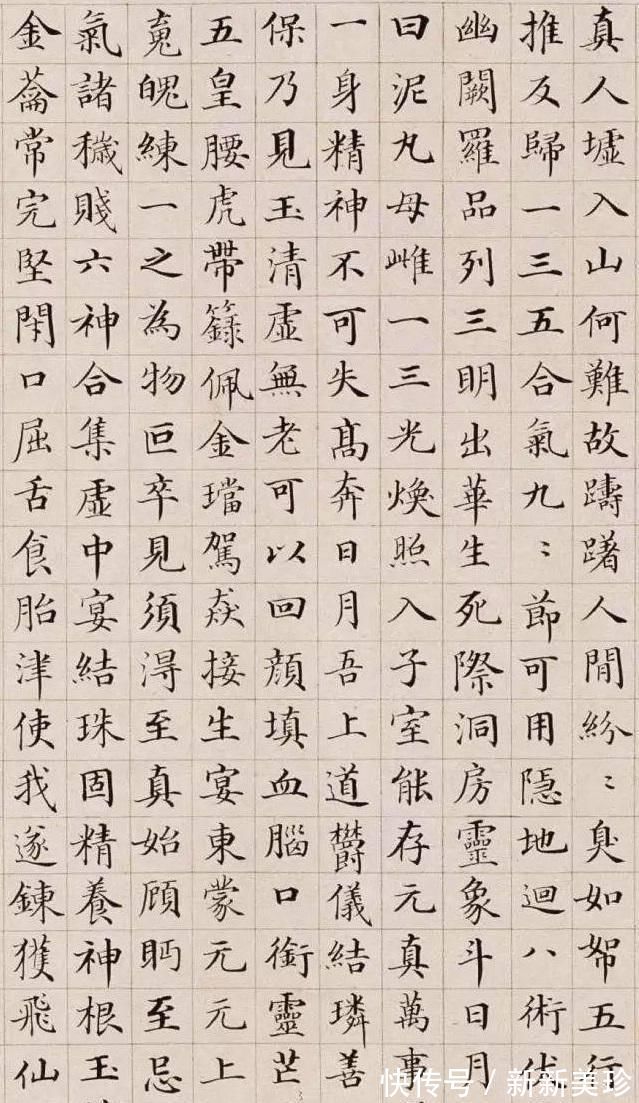 真人墟入山何難故躊躇人間紛〻臭如帤五行
推反歸一三五合氣九〻節可用隱地迴八術伏
幽闕羅品列三明出華生死際洞房靈象斗日月
曰泥丸母雌一三光煥照入子室能存元真萬事
一身精神不可失高奔日月吾上道鬱儀結璘善
保乃見玉清虛無老可以回顏填血腦口銜靈芒
五皇腰虎帶籙佩金璫駕焱接生宴東蒙元元上
䰟魄練一之為物叵卒見須得至真始顧眄至忌
氣諸穢賤六神合集虛中宴結珠固精養神根玉
金籥常完堅閇口屈舌食胎津使我遂鍊獲飛仙
快传号 / 新新美珍